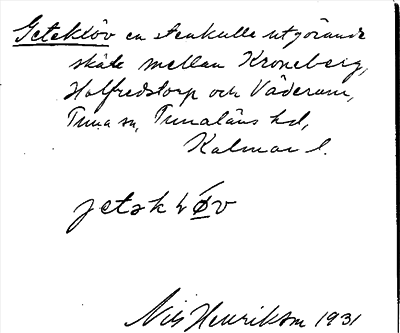 Geteklöv en stenkulle utgörande
skäte mellan Kroneberg,
Holfredstorp och Väderum,
Tuna sn, Tunaläns hd,
Kalmar l.
jetəkløv
Nils Henrikson 1931